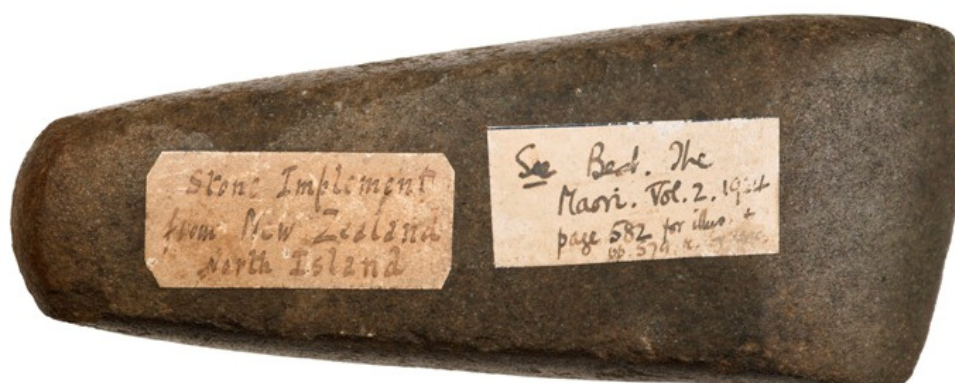 Stone Implement
from New Zealand
North Island
See Best. The
Maori. Vol. 2. 1924
page 582 for illus. &
pp. 579